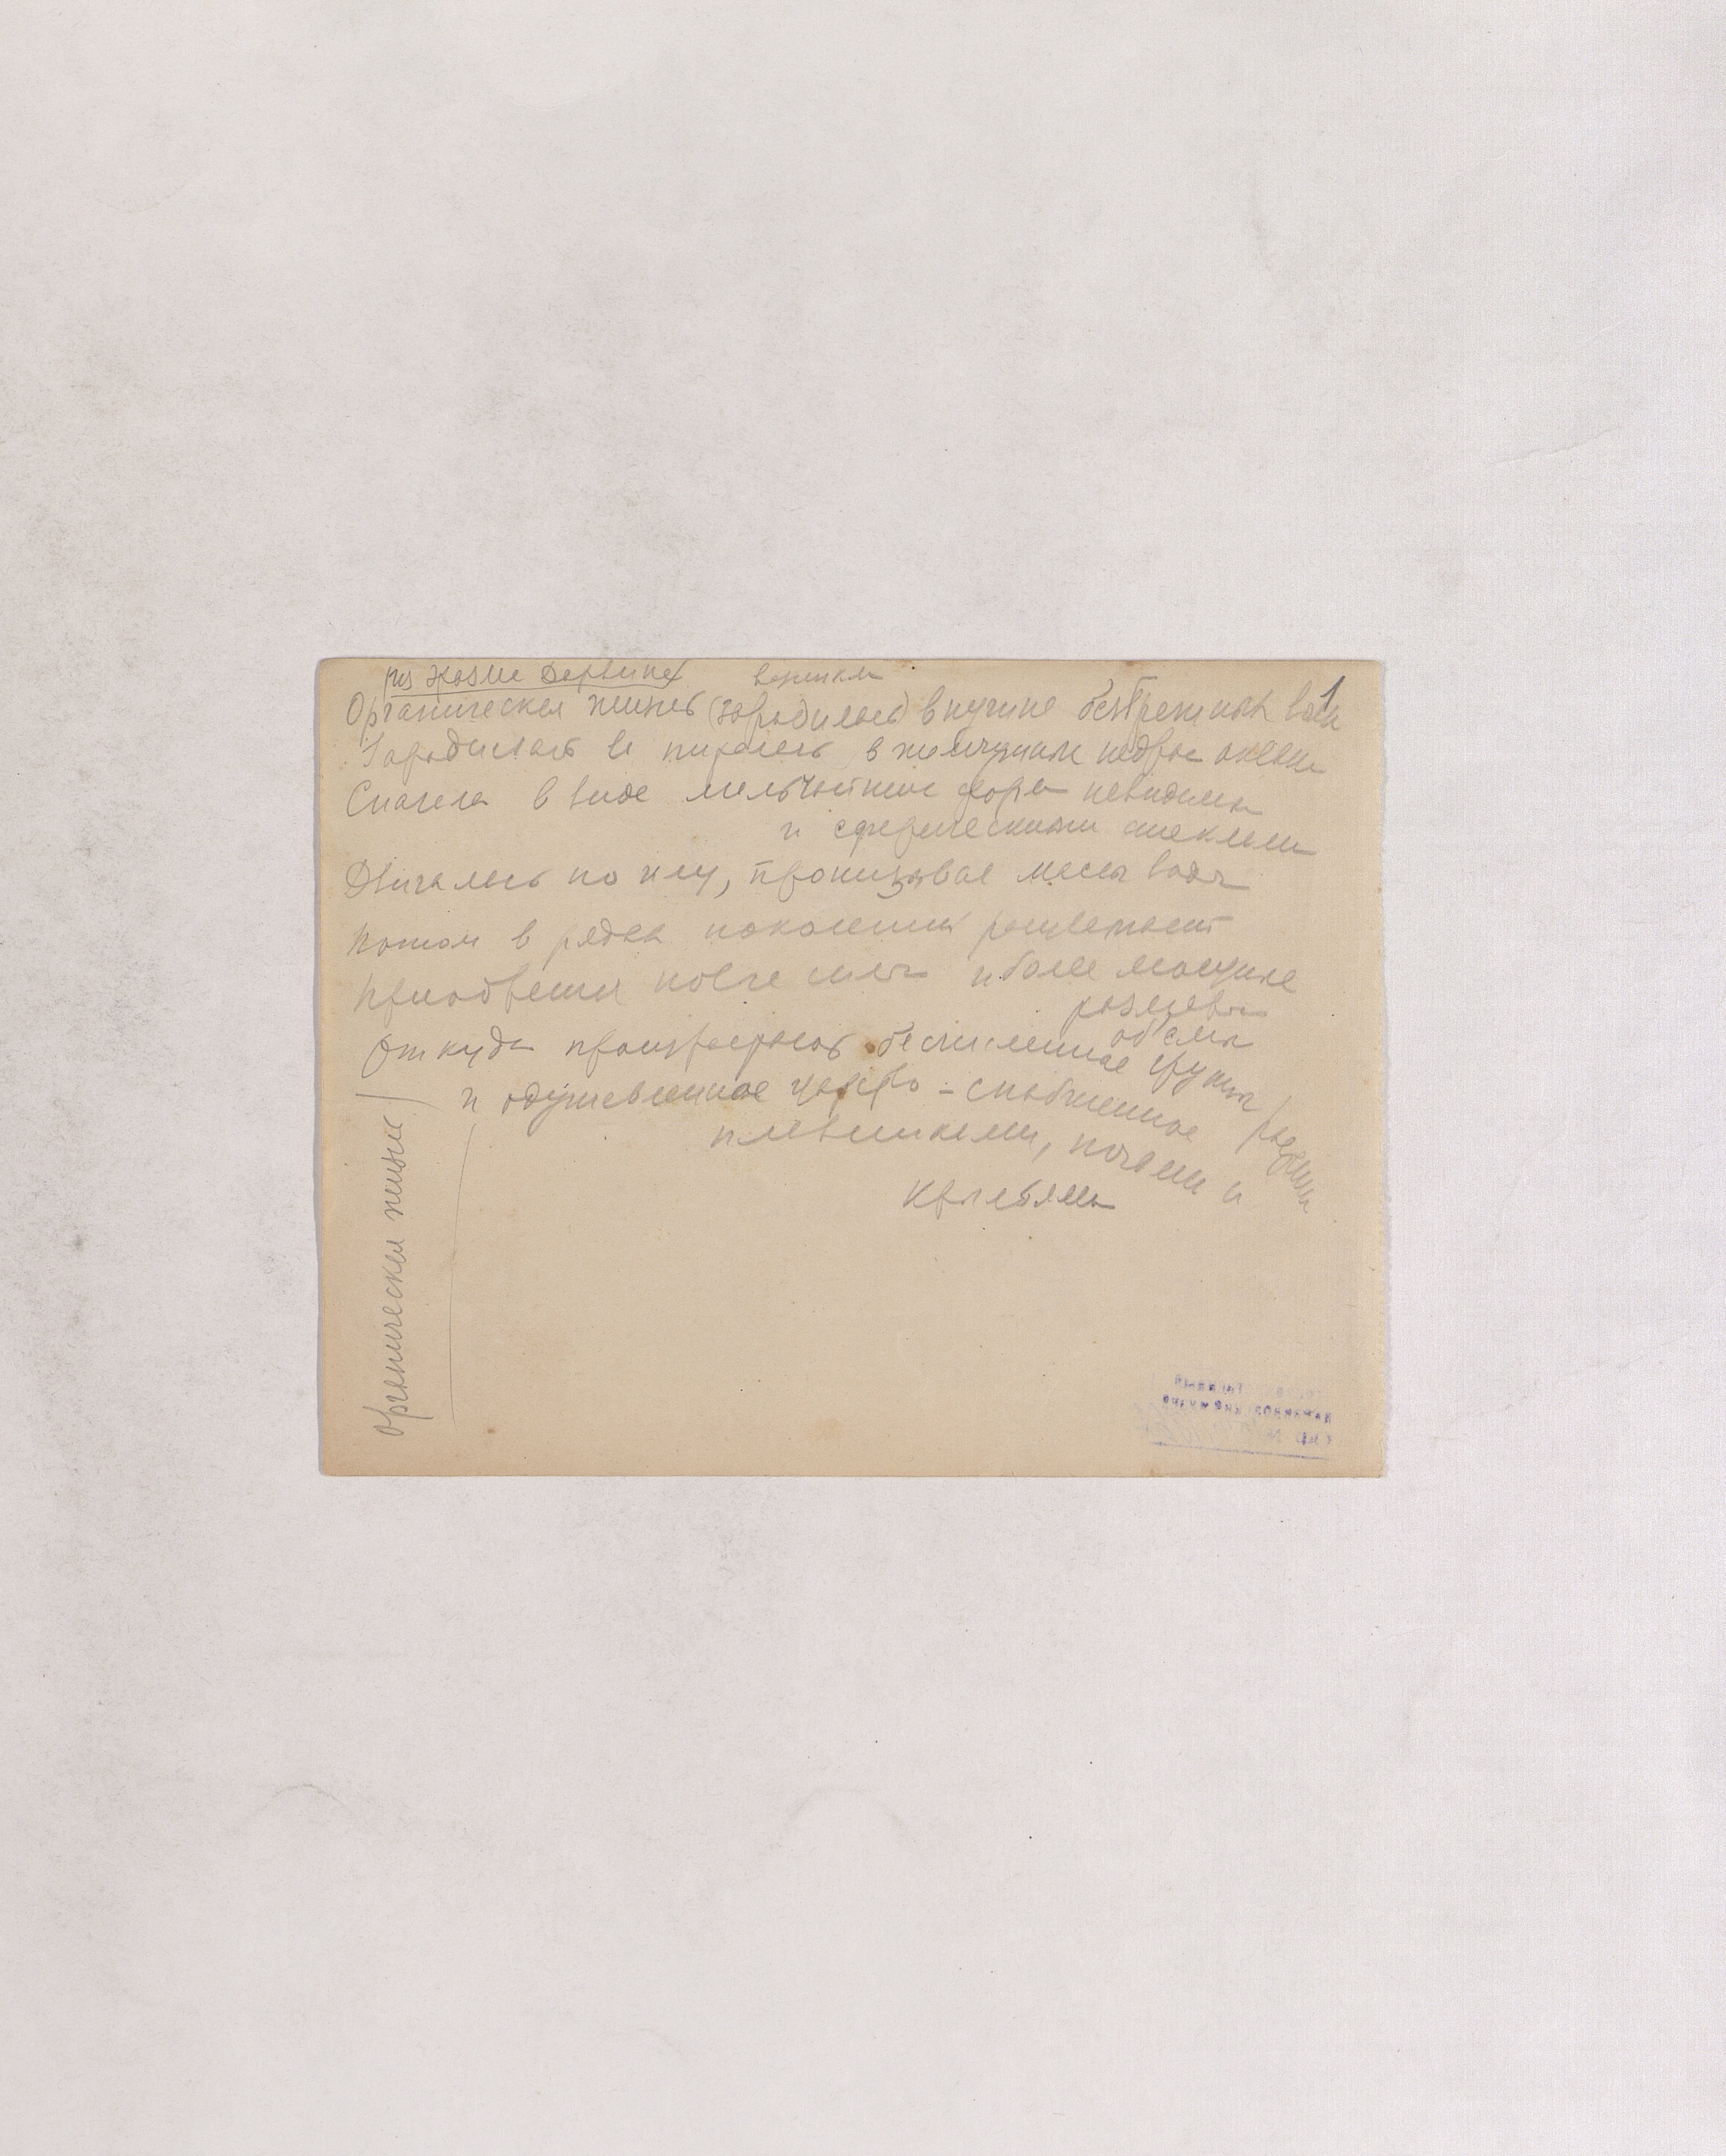 из поэмы Дарвина
возникла
1
Органическая жизнь (зародилась) в пучине безбрежных вод
Зародилась и питалась в жемчужных недрах океана
Сначала в виде мельчайших форм невидимы
и сферическими стеклами
Двигалась по илу, пронизывая массы воды
потом в рядах поколений расцветает
приобретая новые силы и более мощные
размеры
объемы
Откуда произрастают бесчисленные группы растений
и одушевленное царство - снабженное
плавниками, ногами и
крыльями
Органическая жизнь